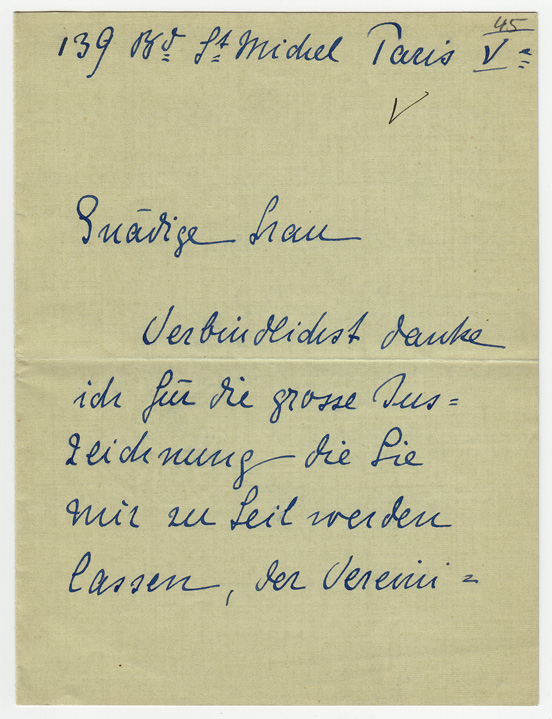 45
139 Bd St Michel Paris V
Gnädige Frau
Verbindlichst danke
ich für die grosse Aus=
zeichnung die Sie
mir zu Teil werden
lassen, der Vereini=